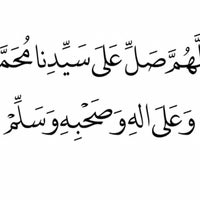 لّٰهُمَّ صَلِّ عَلَى سَيِّدِنَا مُحَمَّ
وَعَلَى الِهِ وَصَحْبِهِ وَسَلِّمْ